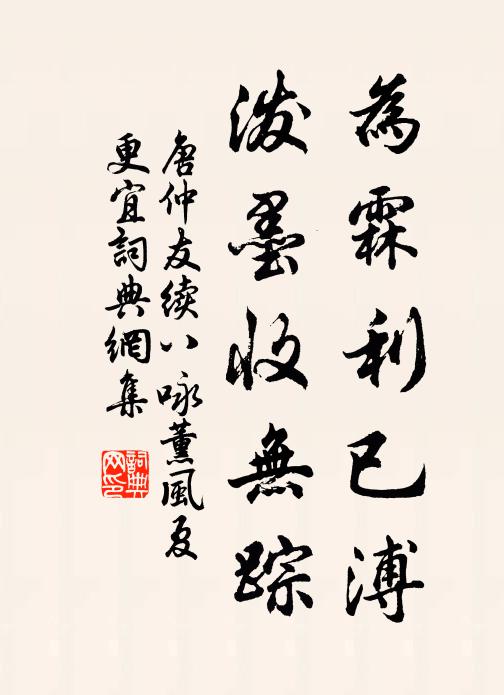 為霖利已溥
泼墨收無踪
唐仲友续八咏薰風夏
更宜詞典網集
詞典网印